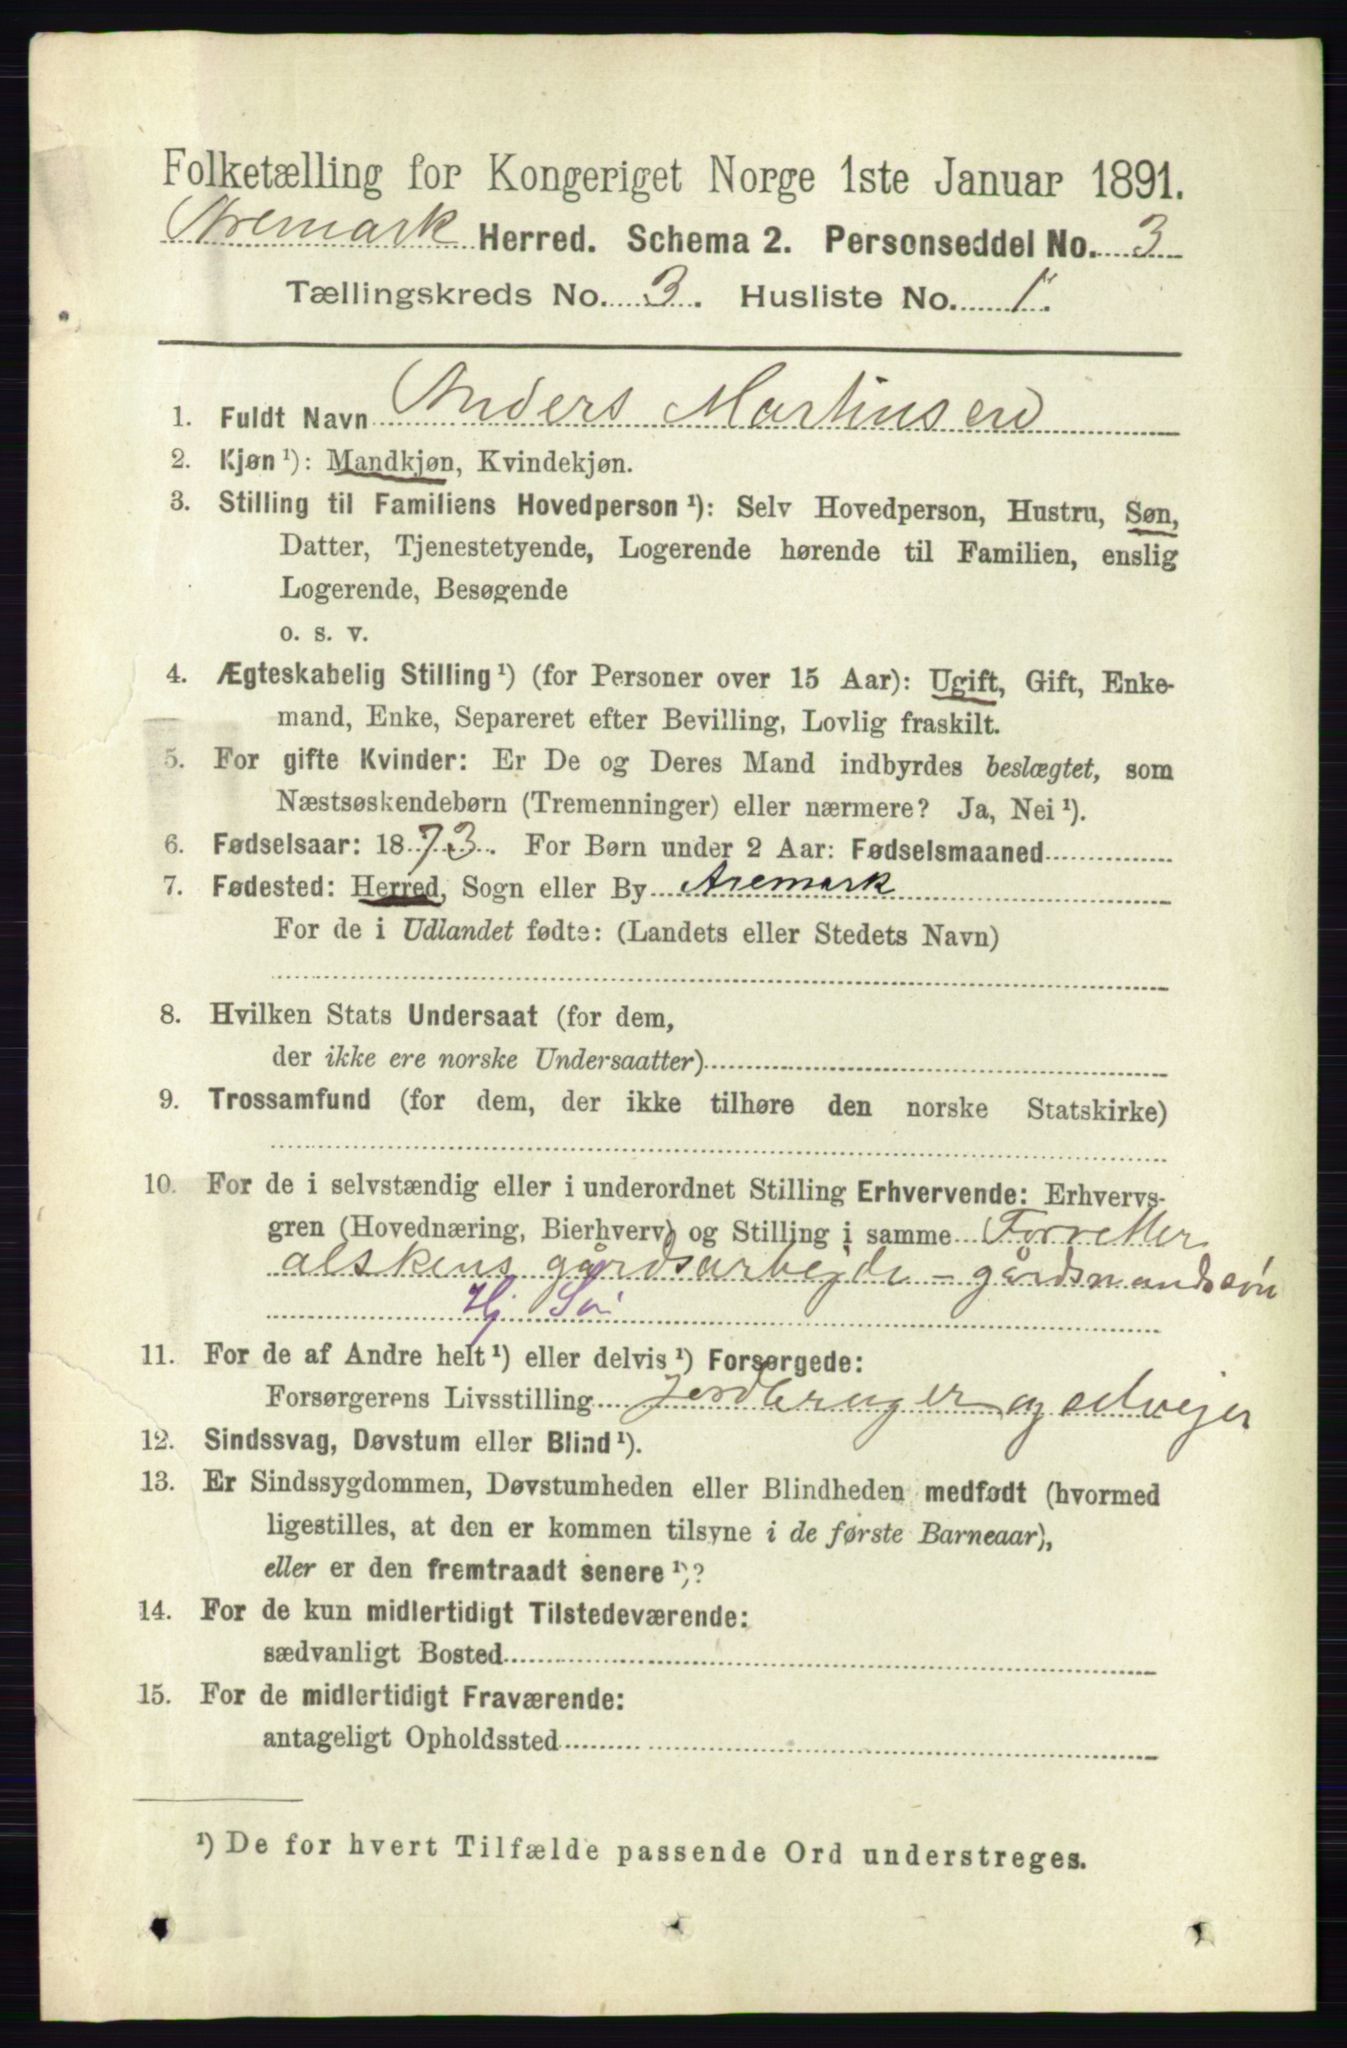 Folketælling for Kongeriget Norge 1ste Januar 1891.
Aremark Herred. Schema 2. Personseddel No. 3
Tællingskreds No. 3. Husliste No. 1.
1. Fuldt Navn Anders Martinsen
2. Kjøn ¹): Mandkjøn, Kvindekjøn.
3. Stilling til Familiens Hovedperson ¹): Selv Hovedperson, Hustru, Søn,
Datter, Tjenestetyende, Logerende hørende til Familien, enslig
Logerende, Besøgende
o. s. v.
4. Ægteskabelig Stilling ¹) (for Personer over 15 Aar): Ugift, Gift, Enke-
mand, Enke, Separeret efter Bevilling, Lovlig fraskilt.
5. For gifte Kvinder: Er De og Deres Mand indbyrdes beslægtet, som
Næstsøskendebørn (Tremenninger) eller nærmere? Ja, Nei ¹).
6. Fødselsaar: 1873. For Børn under 2 Aar: Fødselsmaaned
7. Fødested: Herred, Sogn eller By Aremark
For de i Udlandet fødte: (Landets eller Stedets Navn)
8. Hvilken Stats Undersaat (for dem,
der ikke ere norske Undersaatter)
9. Trossamfund (for dem, der ikke tilhøre den norske Statskirke)
10. For de i selvstændig eller i underordnet Stilling Erhvervende: Erhvervs-
gren (Hovednæring, Bierhverv) og Stilling i samme Forretter
alskens gårdsarbejde - gårdsmandssøn
Hj Søn
11. For de af Andre helt ¹) eller delvis ¹) Forsørgede:
Forsørgerens Livsstilling Jordbruger og selvejer
12. Sindssvag, Døvstum eller Blind ¹).
13. Er Sindssygdommen, Døvstumheden eller Blindheden medfødt (hvormed
ligestilles, at den er kommen tilsyne i de første Barneaar),
eller er den fremtraadt senere ¹)?
14. For de kun midlertidigt Tilstedeværende:
sædvanligt Bosted
15. For de midlertidigt Fraværende:
antageligt Opholdssted
¹) De for hvert Tilfælde passende Ord understreges.